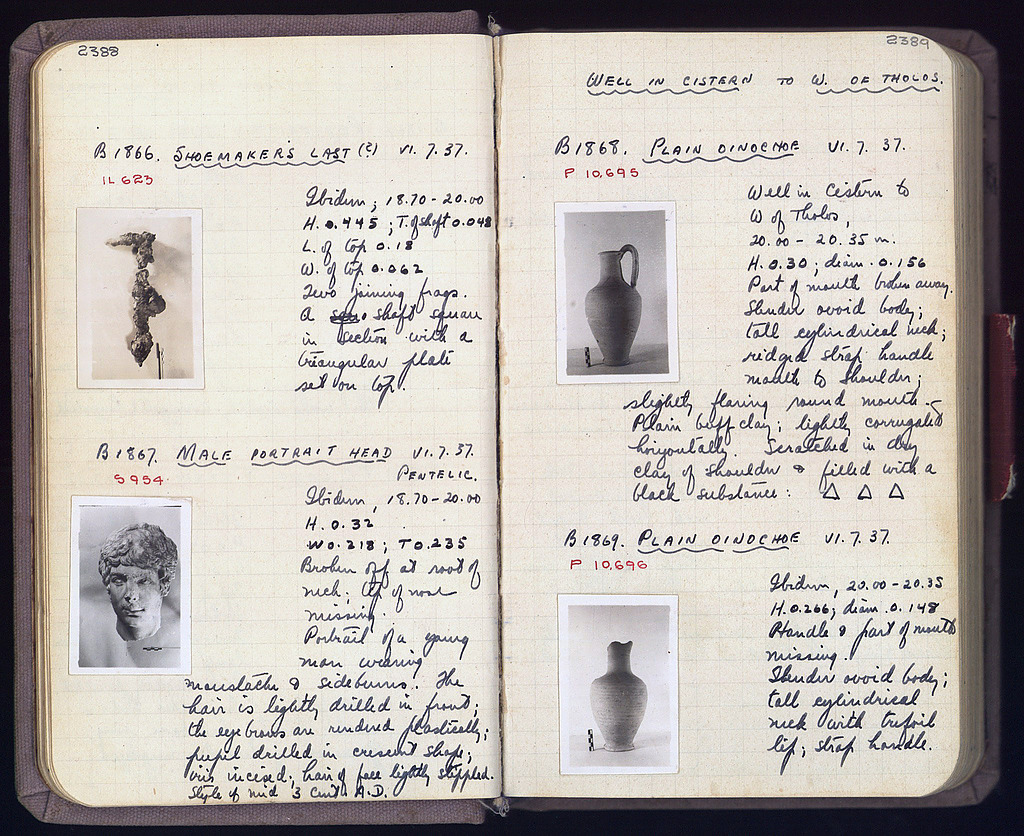 2388
B 1866. SHOEMAKER'S LAST (?) VI. 7. 37.
IL 623
Ibidem, 18.70 - 20.00
H. 0.445; T. of shaft 0.048
L. of top 0.18
W. of top 0.062
Two joining frags.
A shaft square
in section with a
triangular plate
set on top.
B 1867. MALE PORTRAIT HEAD VI. 7. 37.
S 954
PENTELIC.
Ibidem, 18.70-20.00
H. 0.32
W 0.218; T 0.235
Broken off at root of
neck; tip of nose
missing.
Portrait of a young
man wearing
moustache & sideburns. The
hair is lightly drilled in front;
the eyebrows are rendered plastically;
pupil drilled in crescent shape;
iris incised; hair of face lightly stippled.
Style of mid 3 cent. A.D.
2389
WELL IN CISTERN TO W. OF THOLOS.
B 1868. PLAIN OINOCHOE VI. 7. 37.
P 10,695
Well in Cistern to
W of Tholos,
20.00 - 20.35 m.
H. 0.30; diam. 0.156
Part of mouth broken away.
Slender ovoid body;
tall cylindrical neck;
ridged strap handle
mouth to shoulder;
slightly flaring round mouth.-
Plain buff clay; lightly corrugated
horizontally. Scratched in dry
clay of shoulder & filled with a
black substance: Δ Δ Δ
B 1869. PLAIN OINOCHOE VI. 7. 37.
P 10,696
Ibidem, 20.00-20.35
H. 0.266; diam. 0.148
Handle & part of mouth
missing.
Slender ovoid body;
tall cylindrical
neck with trefoil
lip; strap handle.